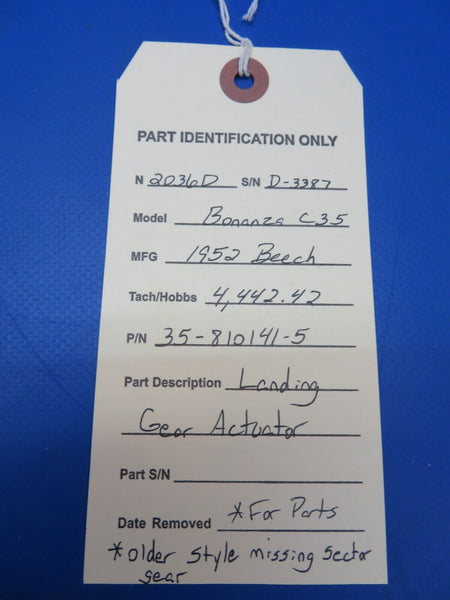 PART IDENTIFICATION ONLY
N 2036D S/N D-3387
Model Bonanza C35
MFG 1952 Beech
Tach/Hobbs 4,442.42
P/N 35-810141-5
Part Description Landing
Gear Actuator
Part S/N
Date Removed *For Parts
*older style missing sector
gear